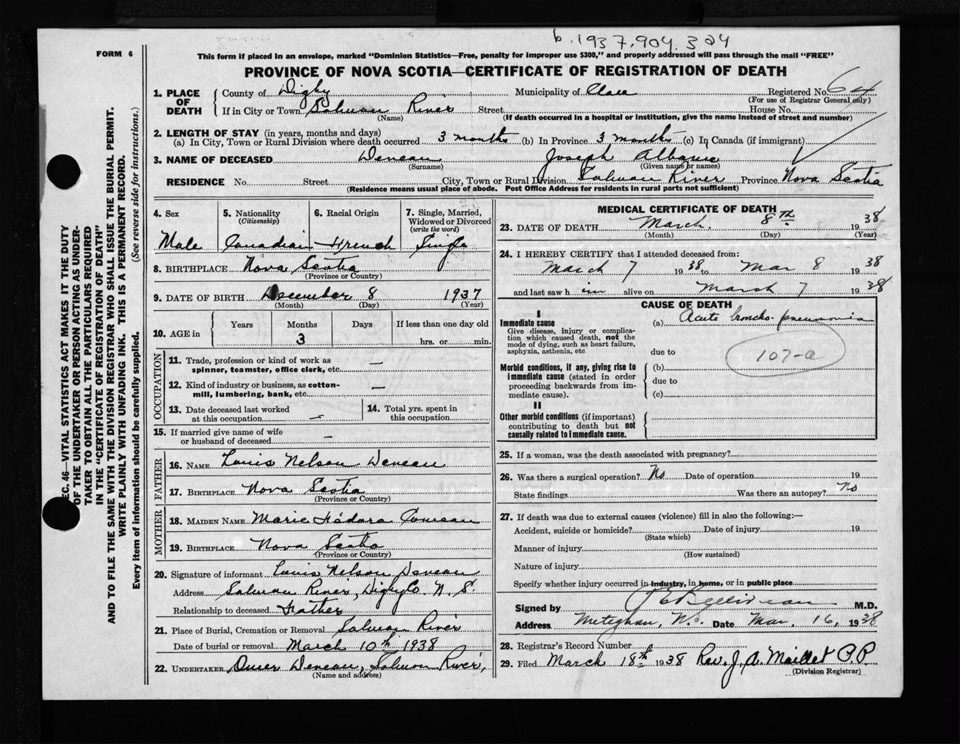 b. 1937. 904. 324
FORM 6
This form if placed in an envelope, marked "Dominion Statistics—Free, penalty for improper use $300," and properly addressed will pass through the mail "FREE"
PROVINCE OF NOVA SCOTIA—CERTIFICATE OF REGISTRATION OF DEATH
SEC. 46—VITAL STATISTICS ACT MAKES IT THE DUTY
OF THE UNDERTAKER OR PERSON ACTING AS UNDER-
TAKER TO OBTAIN ALL THE PARTICULARS REQUIRED
IN THE "CERTIFICATE OF REGISTRATION OF DEATH"
AND TO FILE THE SAME WITH THE DIVISION REGISTRAR WHO SHALL ISSUE THE BURIAL PERMIT.
WRITE PLAINLY WITH UNFADING INK. THIS IS A PERMANENT RECORD.
Every item of information should be carefully supplied. (See reverse side for instructions.)
1. PLACE OF DEATH
County of Digby Municipality of Clare Registered No. 64
(For use of Registrar General only)
If in City or Town Salmon River Street House No.
(Name) (If death occurred in a hospital or institution, give the name instead of street and number)
2. LENGTH OF STAY (in years, months and days)
(a) In City, Town or Rural Division where death occurred 3 months (b) In Province 3 months (c) In Canada (if immigrant)
3. NAME OF DECEASED Deneau Joseph Albanie
(Surname) (Given name or names)
RESIDENCE No. Street City, Town or Rural Division Salmon River Province Nova Scotia
(Residence means usual place of abode. Post Office Address for residents in rural parts not sufficient)
4. Sex 5. Nationality (Citizenship) 6. Racial Origin 7. Single, Married, Widowed or Divorced (write the word)
Male Canadian French Single
8. BIRTHPLACE Nova Scotia
(Province or Country)
9. DATE OF BIRTH December 8 1937
(Month) (Day) (Year)
10. AGE in Years Months Days If less than one day old
3 hrs. or min.
OCCUPATION
11. Trade, profession or kind of work as
spinner, teamster, office clerk, etc. —
12. Kind of industry or business, as cotton-
mill, lumbering, bank, etc. —
13. Date deceased last worked
at this occupation —
14. Total yrs. spent in
this occupation
15. If married give name of wife
or husband of deceased —
FATHER
16. NAME Louis Nelson Deveau
17. BIRTHPLACE Nova Scotia
(Province or Country)
MOTHER
18. MAIDEN NAME Marie Isadora Comeau
19. BIRTHPLACE Nova Scotia
(Province or Country)
20. Signature of informant Louis Nelson Deveau
Address Salmon River, Digby Co. N. S.
Relationship to deceased Father
21. Place of Burial, Cremation or Removal Salmon River
Date of burial or removal March 10th 1938
22. UNDERTAKER Omer Deveau, Salmon River,
(Name and address)
MEDICAL CERTIFICATE OF DEATH
23. DATE OF DEATH March 8th 1938
(Month) (Day) (Year)
24. I HEREBY CERTIFY that I attended deceased from:
March 7 1938 to Mar 8 1938
and last saw h im alive on March 7 1938
CAUSE OF DEATH
I
Immediate cause
Give disease, injury or complica-
tion which caused death, not the
mode of dying, such as heart failure,
asphyxia, asthenia, etc
(a) Acute broncho-pneumonia
due to
107-a
Morbid conditions, if any, giving rise to
immediate cause (stated in order
proceeding backwards from im-
mediate cause).
(b)
due to
(c)
II
Other morbid conditions (if important)
contributing to death but not
causally related to immediate cause.
25. If a woman, was the death associated with pregnancy?
26. Was there a surgical operation? No Date of operation 19
State findings Was there an autopsy? No
27. If death was due to external causes (violence) fill in also the following:—
Accident, suicide or homicide? Date of injury 19
(State which)
Manner of injury
(How sustained)
Nature of injury
Specify whether injury occurred in industry, in home, or in public place
Signed by M.D.
Address Meteghan, N.S. Date Mar. 16, 1938
28. Registrar's Record Number
29. Filed March 18th 1938 Rev. J. A. Maillet P.P.
(Division Registrar)